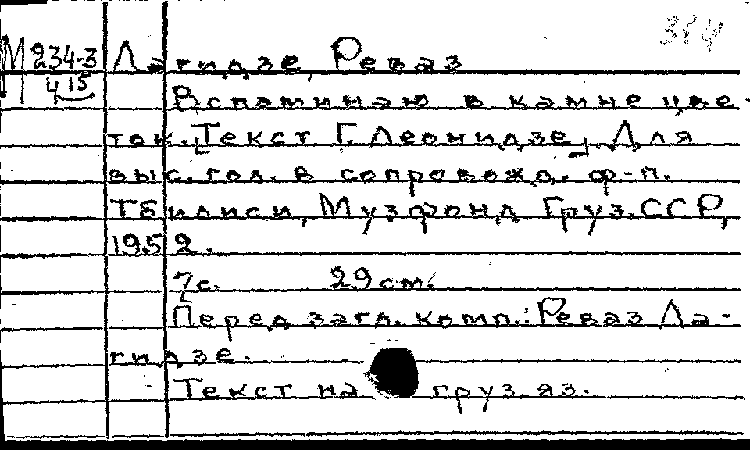 М 234-3 Лагидзе, Реваз
4 15
Вспоминаю в камне цве-
ток. [Текст Г. Леонидзе]. Для
выс. гол. в сопровожд. ф-п.
Тбилиси, Музфонд Груз.ССР,
1952.
7с. 29см.
Перед загл. комп.: Реваз Ла-
гидзе.
Текст на груз.яз.